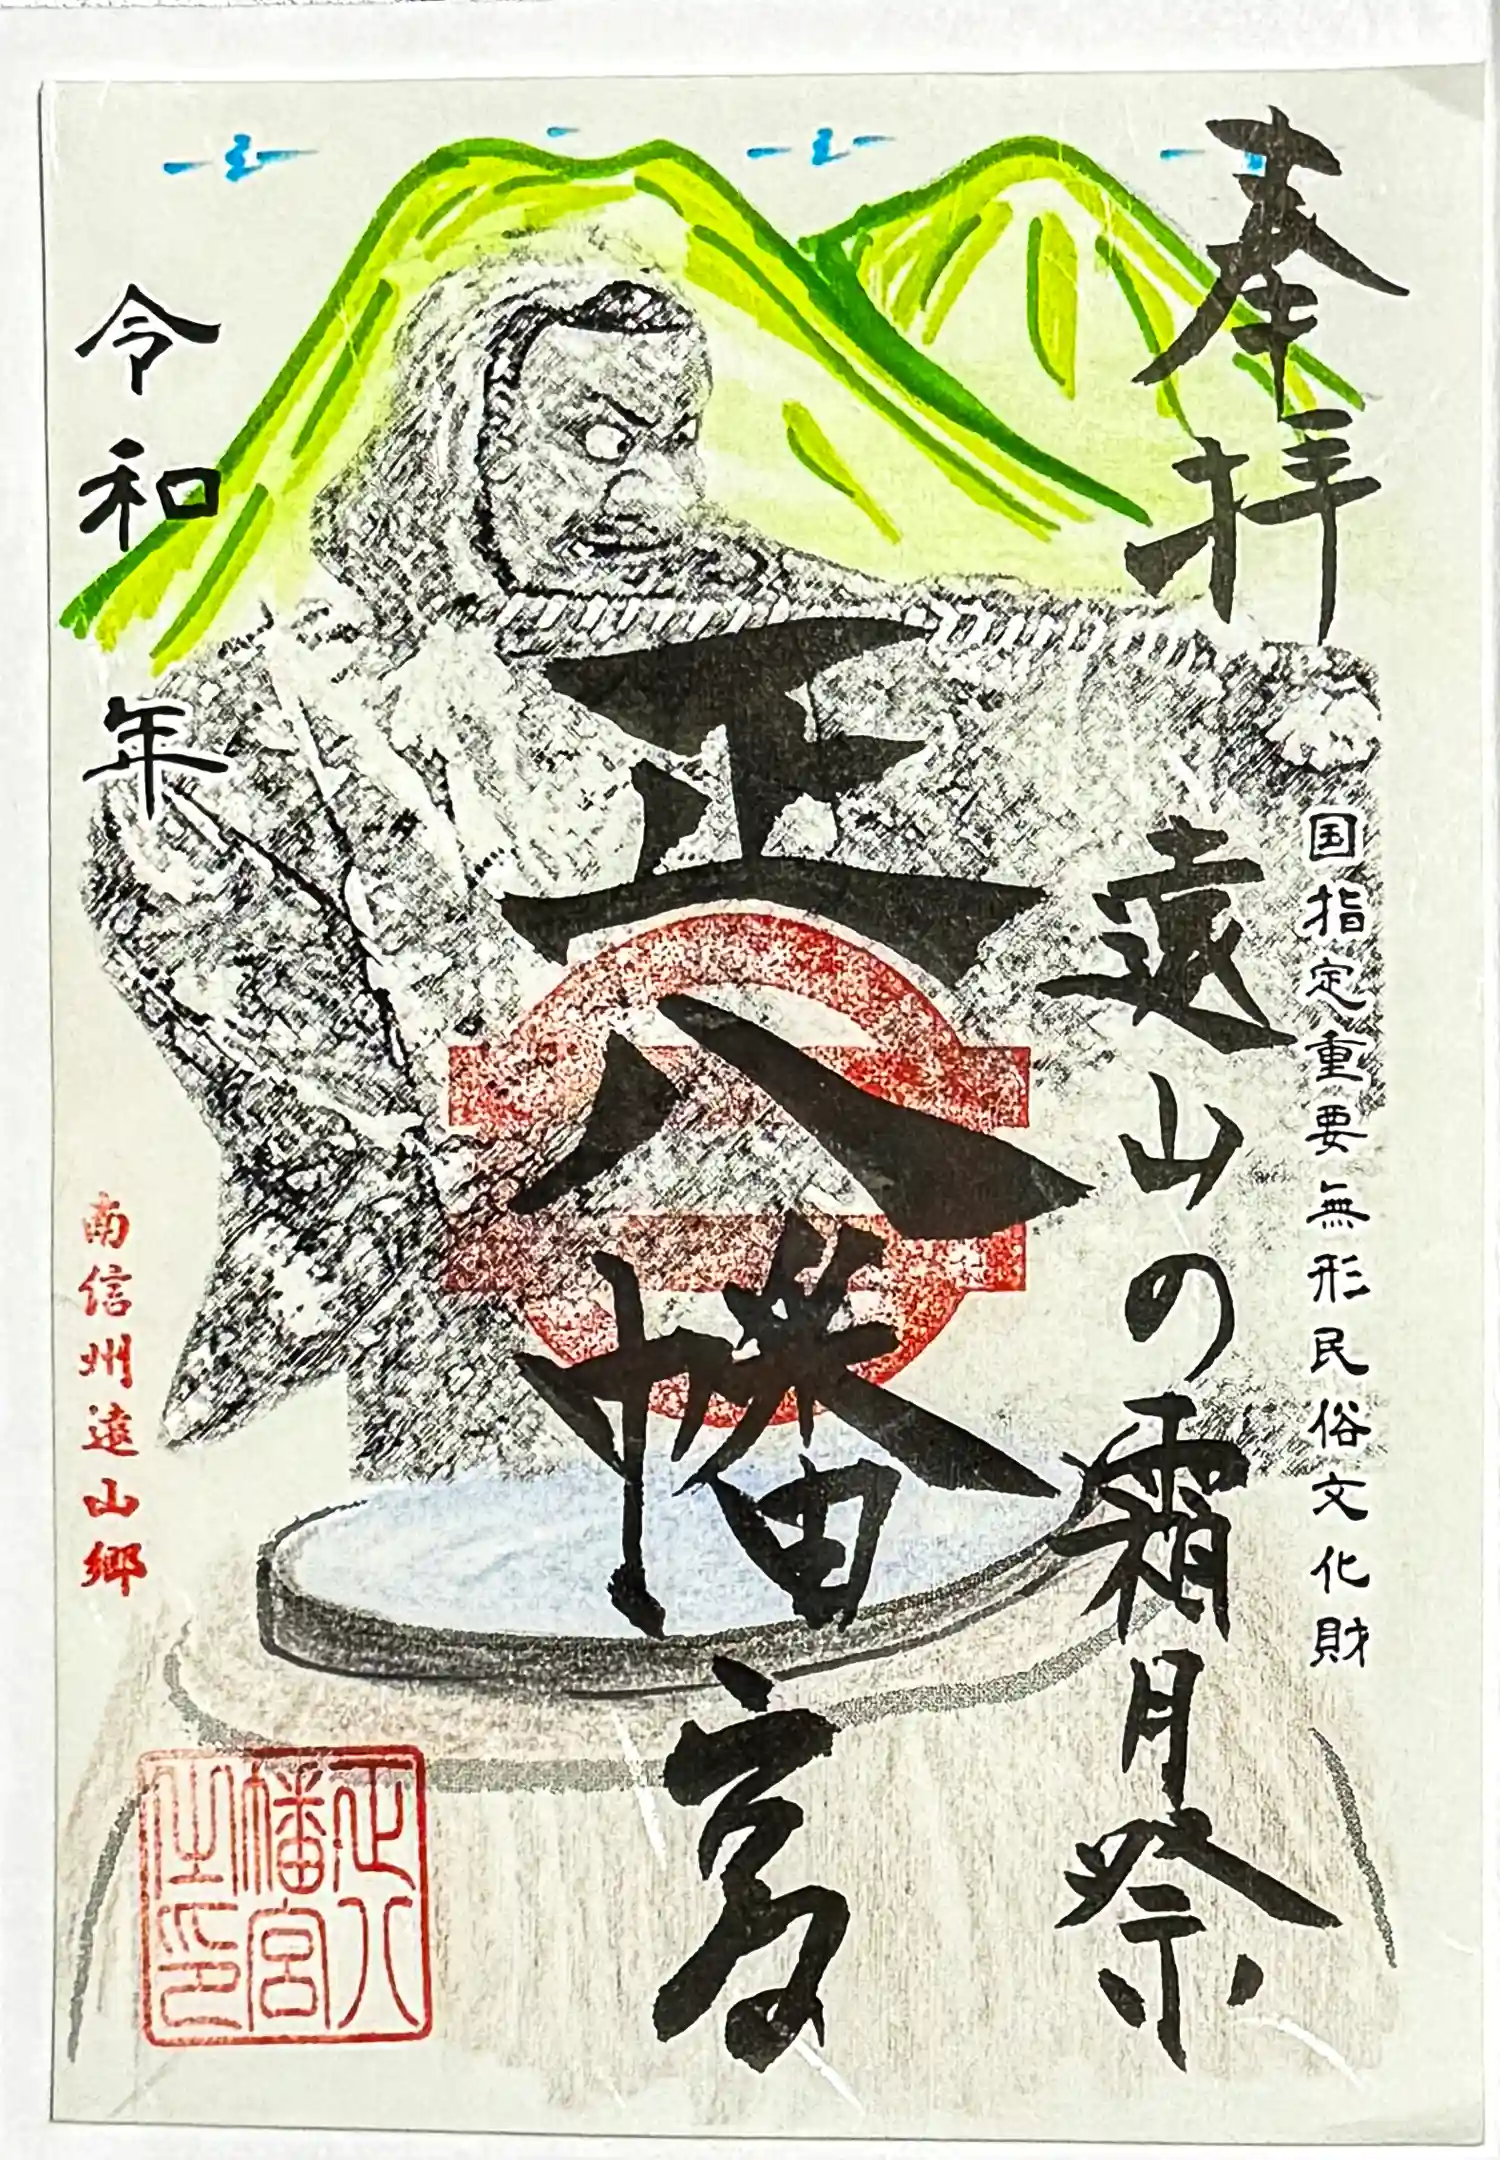 奉拝
国指定重要無形民俗文化財
遠山の霜月祭
正八幡宮
令和 年
南信州遠山郷
正八
幡宮
之印